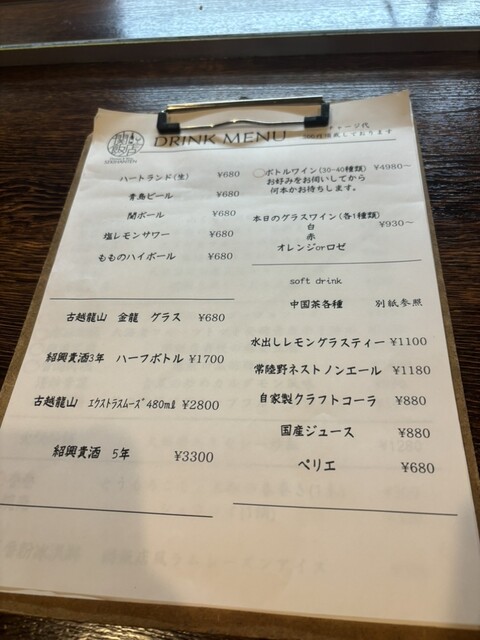 DRINK MENU
チャージ代
頂戴しております
ハートランド(生) ¥680
青島ビール ¥680
関ボール ¥680
塩レモンサワー ¥680
もものハイボール ¥680
古越龍山 金龍 グラス ¥680
紹興貴酒3年 ハーフボトル ¥1700
古越龍山 エクストラスムーズ480ml ¥2800
紹興貴酒 5年 ¥3300
◯ボトルワイン(30-40種類) ¥4980~
お好みをお伺いしてから
何本かお持ちします。
本日のグラスワイン(各1種類)
白 ¥930~
赤
オレンジorロゼ
soft drink
中国茶各種 別紙参照
水出しレモングラスティー ¥1100
常陸野ネストノンエール ¥1180
自家製クラフトコーラ ¥880
国産ジュース ¥880
ペリエ ¥680